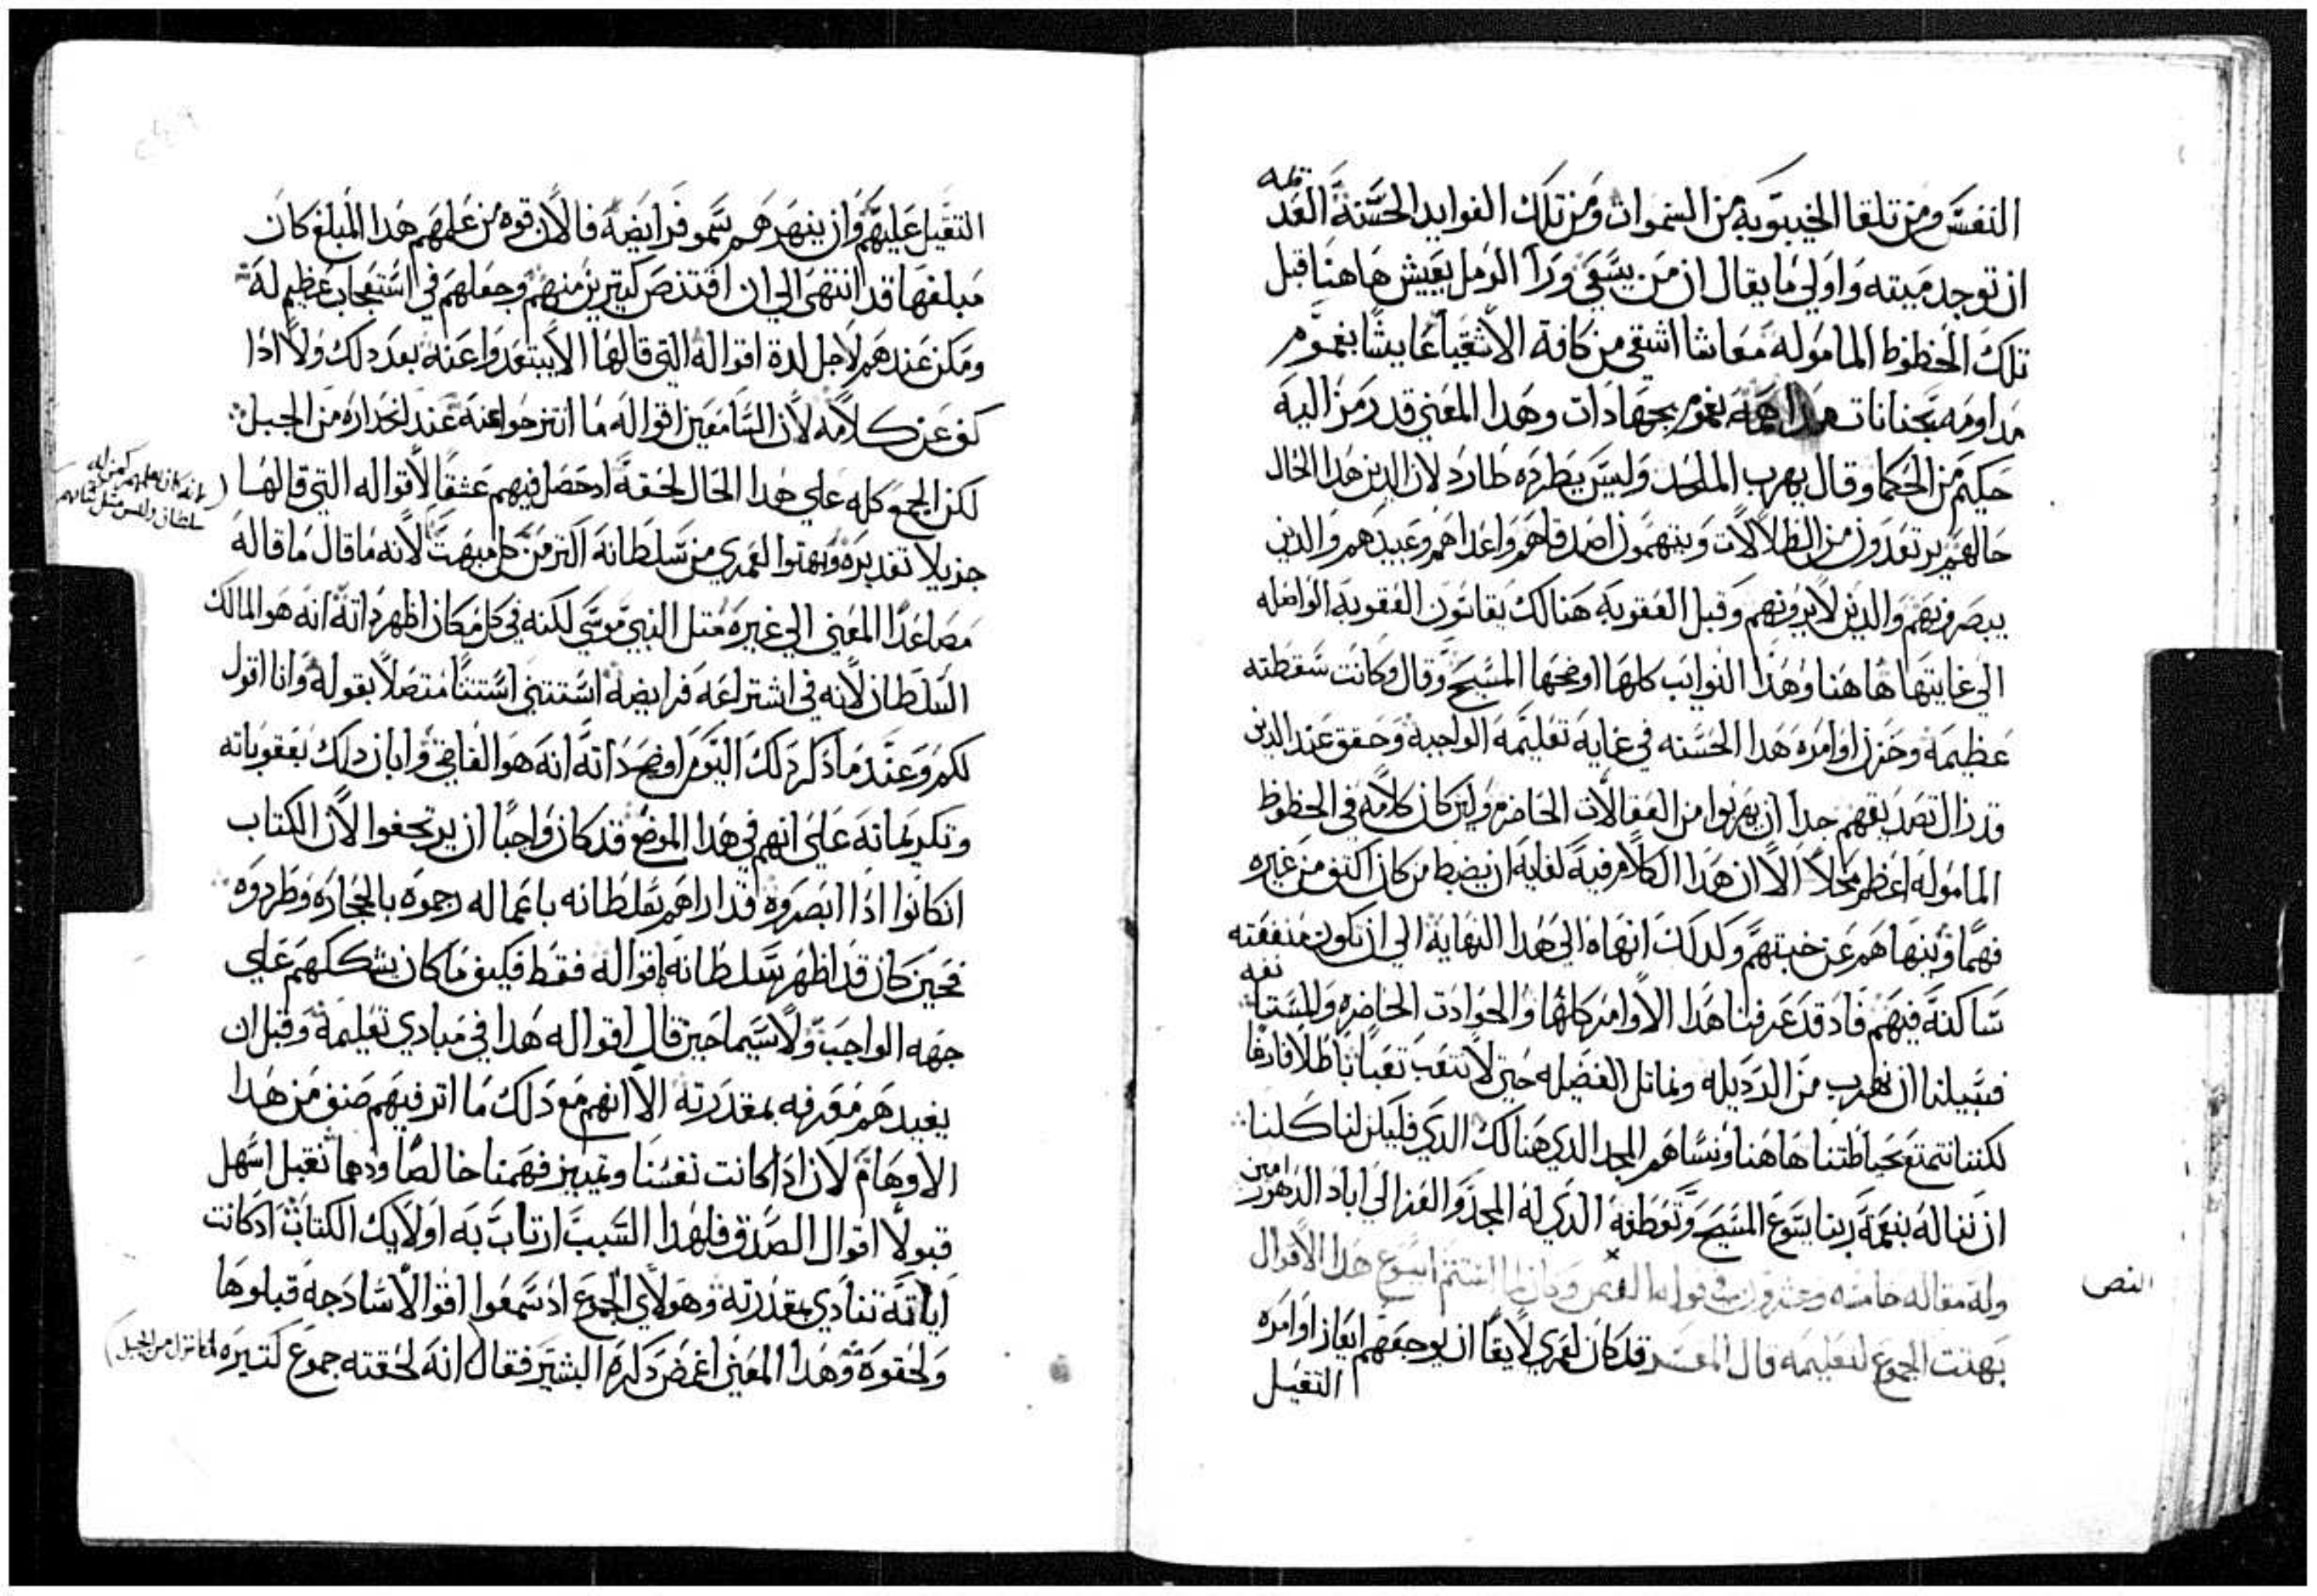 النفس ومن تلقا الخيبوبة من السموات ومن تلك الفوايد الحسنة العد قله
ان توجد ميته واولي ما يقال ان من يسعي ورآ الرمل يعيش هاهنا قبل
تلك الحظوظ الماموله معاشا اشقي من كافة الاشقيا عايشا بغموم
مداومه بجنانات بغموم بجهادات وهدا المعني قد رمز اليه
حكيم من الحكما وقال يهرب الملحد وليس يطرده طارد لان الدين هدا الحال
حالهم يرتعدون من الظلالات ويتهمون اصدقاهم واعداهم وعبيدهم والدين
يبصرونهم والدين لا يرونهم وقبل العقوبة هنالك يقاسون العقوبة الواصله
الي غايتها هاهنا وهدا النوايب كلها اوضحها المسيح وقال وكانت سقطته
عظيمة وخزن اوامره هدا الحسنه في غاية تعليمه الواجبة وحقق عند الدين
قد زال تصديقهم جدا ان يهربوا من الفعالات الحاضره ولين كان كلامه في الحظوظ
الماموله اعظم محلا الا ان هدا الكلام فيه كفاية ان يضبط من كان اكثف من غيره
فهما وينهاهم عن خبتهم ولدلك انهاه الي هدا النهاية الي ان تكون منفعته
ساكنة فيهم فاد قد عرفنا هدا الاوامر كلها والحوادت الحاضره والمستانفه
فسبيلنا ان نهرب من الرديله ونماتل الفضيله حتي لا نتعب تعبا باطلا فارغا
لكننا نتمتع بحياطتنا هاهنا ونساهم المجد الدي هنالك الدي فليكن لنا كلنا
ان نناله بنعمة ربنا يسوع المسيح وتعطفه الدي له المجد والعز الي اباد الدهور امين
وله مقاله خامسه وعشرون في قوله الفصل وكان لما استتم ايسوع هدا الاقوال
النص
بهتت الجموع لتعليمه قال المفسر قد كان لعمري لايقا ان يوجعهم ايعاز اوامره
التقيل
التقيل عليهم وان ينهرهم سمو فرايضه فالان قوه من علمهم هدا المبلغ كان
مبلغها قد انتهي الي ان اقتنص كتيرين منهم وجعلهم في استعجاب عظيم له
ومكن عندهم لاجل لدة اقواله التي قالها الا يبتعدوا عنه بعد دلك ولا ادا
كف عن كلامه لان السامعين اقواله ما انتزحوا عنه عند انحداره من الجبل
لكن الجمع كله علي هدا الحال لحقه اد حصل فيهم عشقا لاقواله التي قالها
لانه كان يعلمهم كمن له
سلطان وليس متل كتابهم
جزيلا تقديره وبهتوا لعمري من سلطانه اكتر من كل مبهت لانه ما قال ما قاله
مصاعدا المعني الي غيره متل النبي موسي لكنه في كل مكان اظهر داته انه هو المالك
السلطان لانه في اشتراعه فرايضه استتني استتنا متصلا بقوله وانا اقول
لكم وعند ما دكر دلك اليوم اوضح داته انه هو القاضي وابان دلك بعقوباته
وتكريماته علي انهم في هدا الموضع قد كان واجبا ان يرتجفوا لان الكتاب
ان كانوا ادا ابصروه قد اراهم سلطانه باعماله رجموه بالحجاره وطردوه
فحين كان قد اظهر سلطانه باقواله فقط فكيف ما كان يشككهم علي
جهه الواجب ولا سيما حين قال اقواله هدا في مبادي تعليمه وقبل ان
يفيدهم معرفه بمقدرته الا انهم مع دلك ما اتر فيهم صنف من هدا
الاوهام لان ادا كانت نفسنا وتمييز فهمنا خالصا ودهما تقبل اسهل
قبولا اقوال الصدق فلهدا السبب ارتاب به اولايك الكتاب اد كانت
اياته تنادي بمقدرته وهولاي الجموع اد سمعوا اقوالا سادجة قبلوها
ولحقوه وهدا المعني اغمض دكره البشير فقال انه لحقته جموع كتيره لما نزل من الجبل